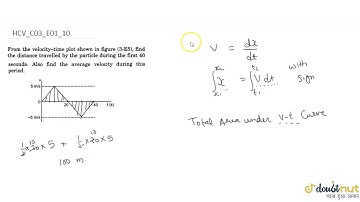 HCV_C03_E01_10
From the velocity-time plot shown in figure (3-E5), find
the distance travelled by the particle during the first 40
seconds. Also find the average velocity during this
period.
5 m/s
0
10 20 30 40 t (s)
–5 m/s
1/2 × 20 × 5 + 1/2 × 20 × 5
10 10
100 m
V = dx/dt
∫ x = ∫ V dt with sign
xi ti
Total Area under v-t curve
doubtnut